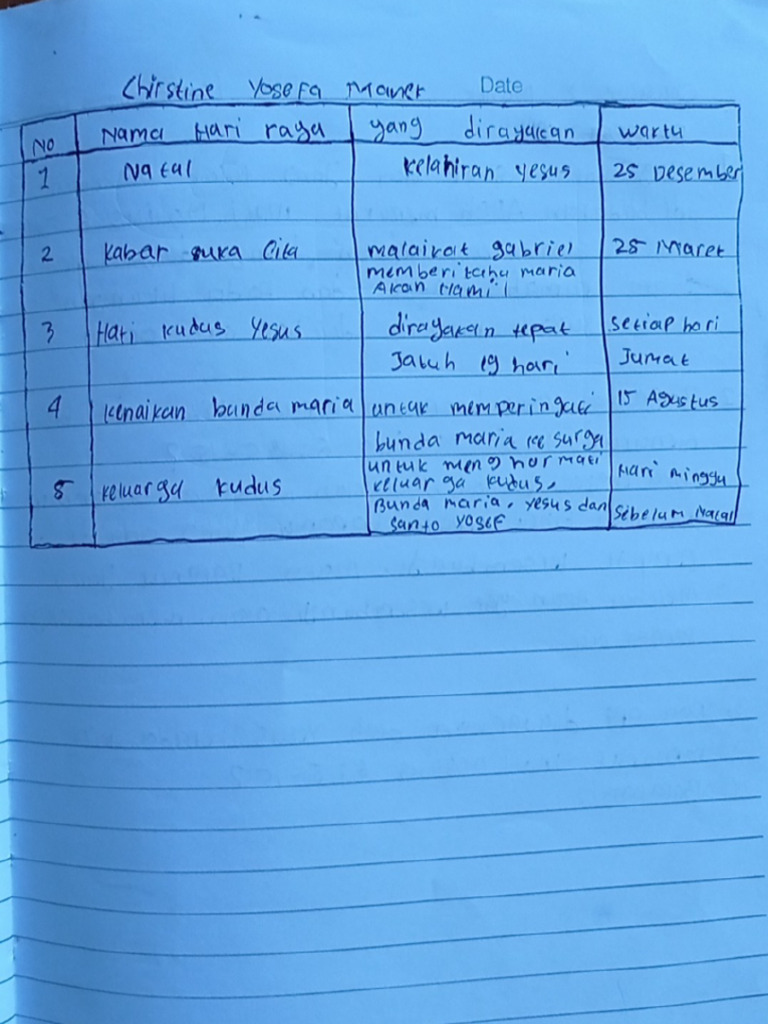 Chirstine Yosefa Mawer Date
No Nama Hari raya yang dirayakan waktu
1 Natal kelahiran yesus 25 Desember
2 kabar suka Cita malaikat gabriel 25 Maret
memberitahu maria
Akan Hamil
3 Hati kudus Yesus dirayakan tepat setiap hari
Jatuh 19 hari Jumat
4 kenaikan bunda maria untuk memperingati 15 Agustus
bunda maria ke surga
untuk menghormati
5 keluarga kudus keluarga kudus, Hari minggu
Bunda maria, yesus dan sebelum Natal
santo yosef